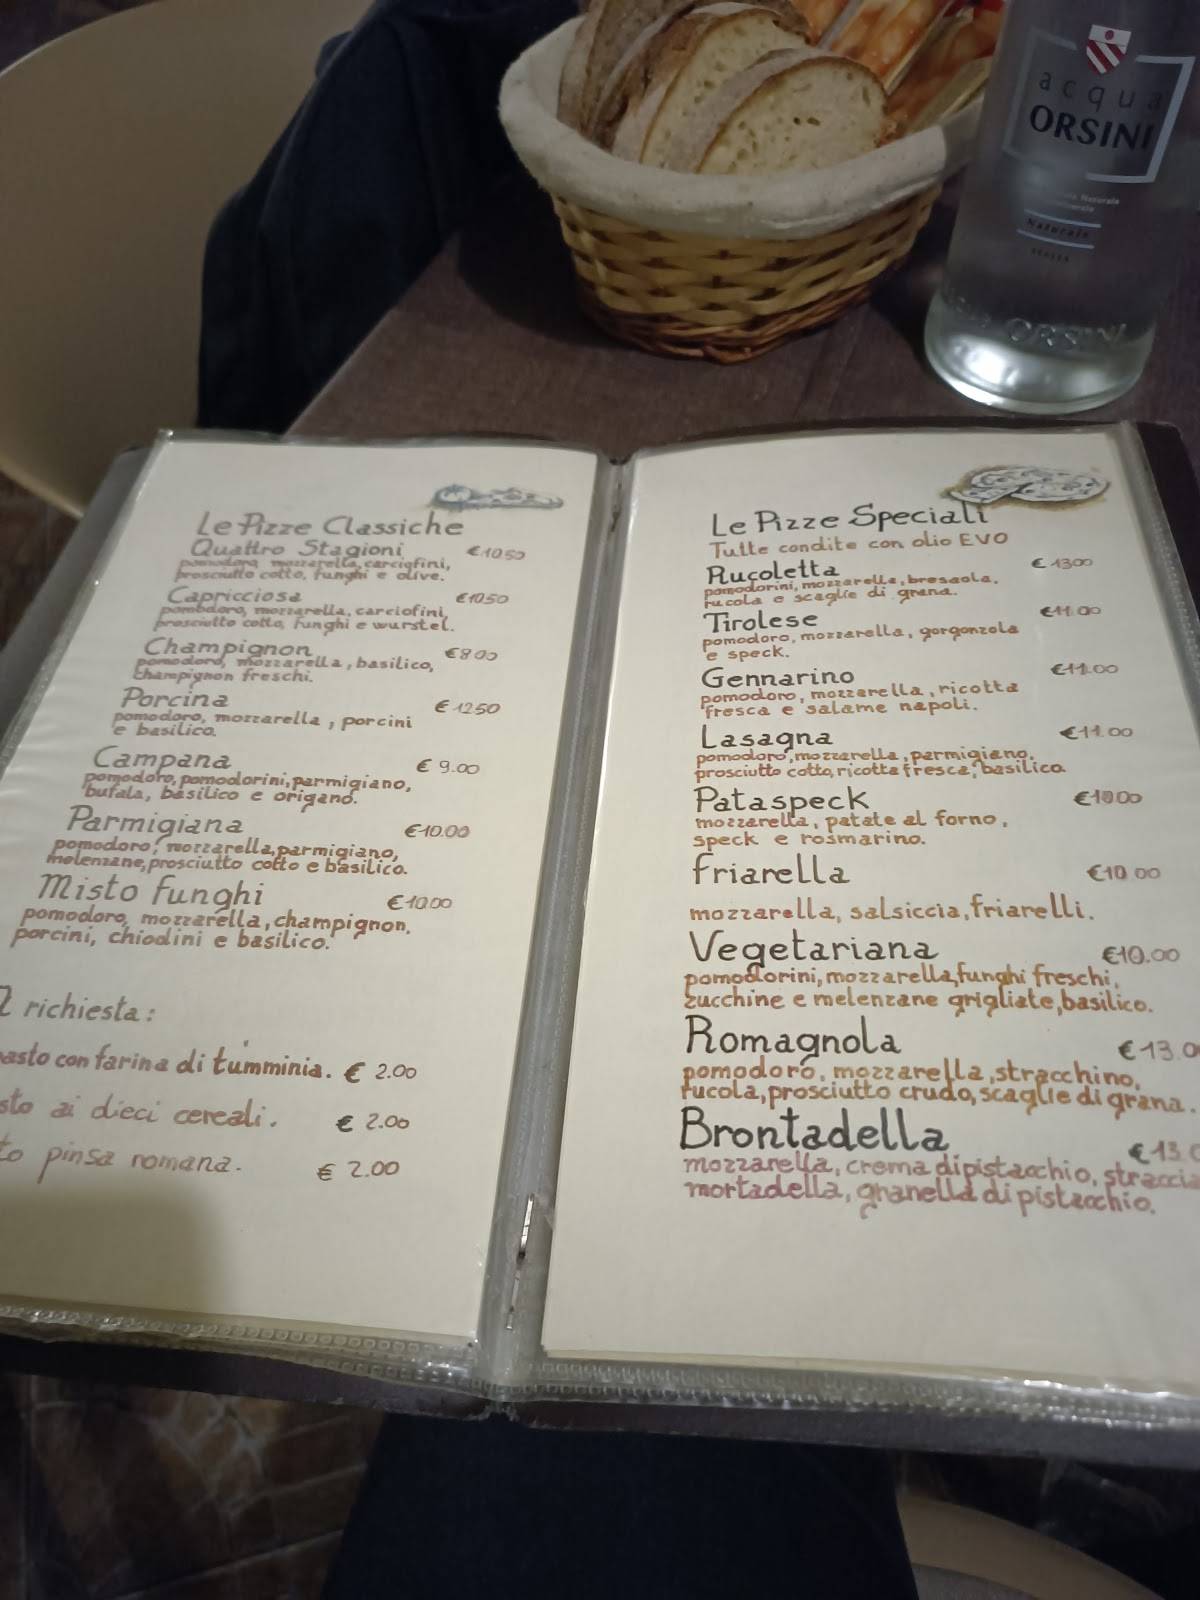 acqua
ORSINI
Naturale
ITALIA
ORSINI
Le Pizze Classiche
Quattro Stagioni €10.50
pomodoro, mozzarella, carciofini,
prosciutto cotto, funghi e olive.
Capricciosa €10.50
pomodoro, mozzarella, carciofini,
prosciutto cotto, funghi e wurstel.
Champignon €8.00
pomodoro, mozzarella, basilico,
champignon freschi.
Porcina €12.50
pomodoro, mozzarella, porcini
e basilico.
Campana €9.00
pomodoro, pomodorini, parmigiano,
bufala, basilico e origano.
Parmigiana €10.00
pomodoro, mozzarella, parmigiano,
melenzane, prosciutto cotto e basilico.
Misto funghi €10.00
pomodoro, mozzarella, champignon,
porcini, chiodini e basilico.
richiesta:
con farina di tumminia. € 2.00
ai dieci cereali. € 2.00
pinsa romana. € 2.00
Le Pizze Speciali
Tutte condite con olio EVO
Rucoletta € 13.00
pomodorini, mozzarella, bresaola,
rucola e scaglie di grana.
Tirolese €11.00
pomodoro, mozzarella, gorgonzola
e speck.
Gennarino €11.00
pomodoro, mozzarella, ricotta
fresca e salame napoli.
Lasagna €11.00
pomodoro, mozzarella, parmigiano,
prosciutto cotto, ricotta fresca, basilico.
Pataspeck €10.00
mozzarella, patate al forno,
speck e rosmarino.
friarella €10.00
mozzarella, salsiccia, friarelli.
Vegetariana €10.00
pomodorini, mozzarella, funghi freschi,
zucchine e melenzane grigliate, basilico.
Romagnola €13.0
pomodoro, mozzarella, stracchino,
rucola, prosciutto crudo, scaglie di grana.
Brontadella €13.0
mozzarella, crema di pistacchio, straccia
mortadella, granella di pistacchio.